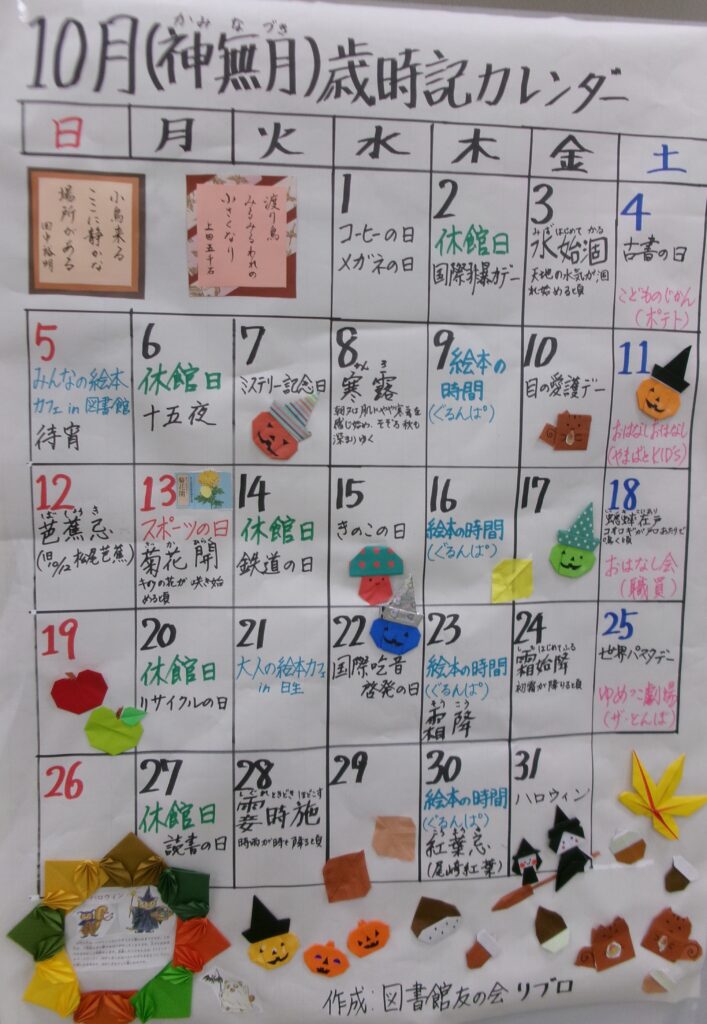 かみなづき
10月(神無月)歳時記カレンダー
日 月 火 水 木 金 土
小鳥来る
ここに静かな
場所がある
田中裕明
渡り鳥
みるみるわれの
小さくなり
上田五千石
1
コーヒーの日
メガネの日
2
休館日
国際非暴力デー
3
みずはじめてかる
水始涸
天地の水気が涸
れ始める頃
4
古書の日
こどものじかん
(ポテト)
5
みんなの絵本
カフェin図書館
待宵
6
休館日
十五夜
7
ミステリー記念日
8
かんろ
寒露
感じ始め、そぞろ秋も
深まりゆく
9
絵本の
時間
(ぐるんぱ)
10
目の愛護デー
11
おはなしおはなし
(やまばとKID'S)
12
ばしょうき
芭蕉忌
(旧10/12松尾芭蕉)
13
スポーツの日
菊花開
キクの花が咲き始
める頃
14
休館日
鉄道の日
15
きのこの日
16
絵本の時間
(ぐるんぱ)
17
18
蟋蟀在戸
コオロギが戸口あたりで
鳴く頃
おはなし会
(職員)
19
20
休館日
リサイクルの日
21
大人の絵本カフェ
in 日生
22
国際吃音
啓発の日
23
絵本の時間
(ぐるんぱ)
そうこう
霜降
24
しもはじめてふる
霜始降
初霜が降りる頃
25
世界パスタデー
ゆめっこ劇場
(ザ・とんぼ)
26
27
休館日
読書の日
28
こさめときどきほどこす
霎時施
時雨が時々降る頃
29
30
絵本の時間
(ぐるんぱ)
こうようき
紅葉忌
(尾崎紅葉)
31
ハロウィン
ハロウィン
作成:図書館友の会 リブロ